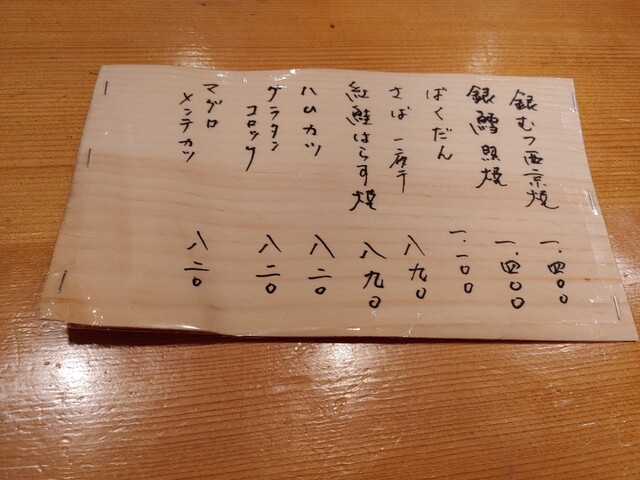 銀むつ西京焼 一.四〇〇
銀鱈照焼 一.四〇〇
ばくだん 一.一〇〇
さば一夜干 八九〇
紅鮭はらす焼 八九〇
ハムカツ 八二〇
グラタン
コロッケ 八二〇
マグロ
メンチカツ 八二〇